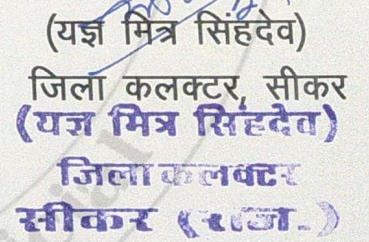 (यज्ञ मित्र सिंहदेव)
जिला कलक्टर, सीकर
(यज्ञ मित्र सिंहदेव)
जिला कलक्टर
सीकर (राज.)